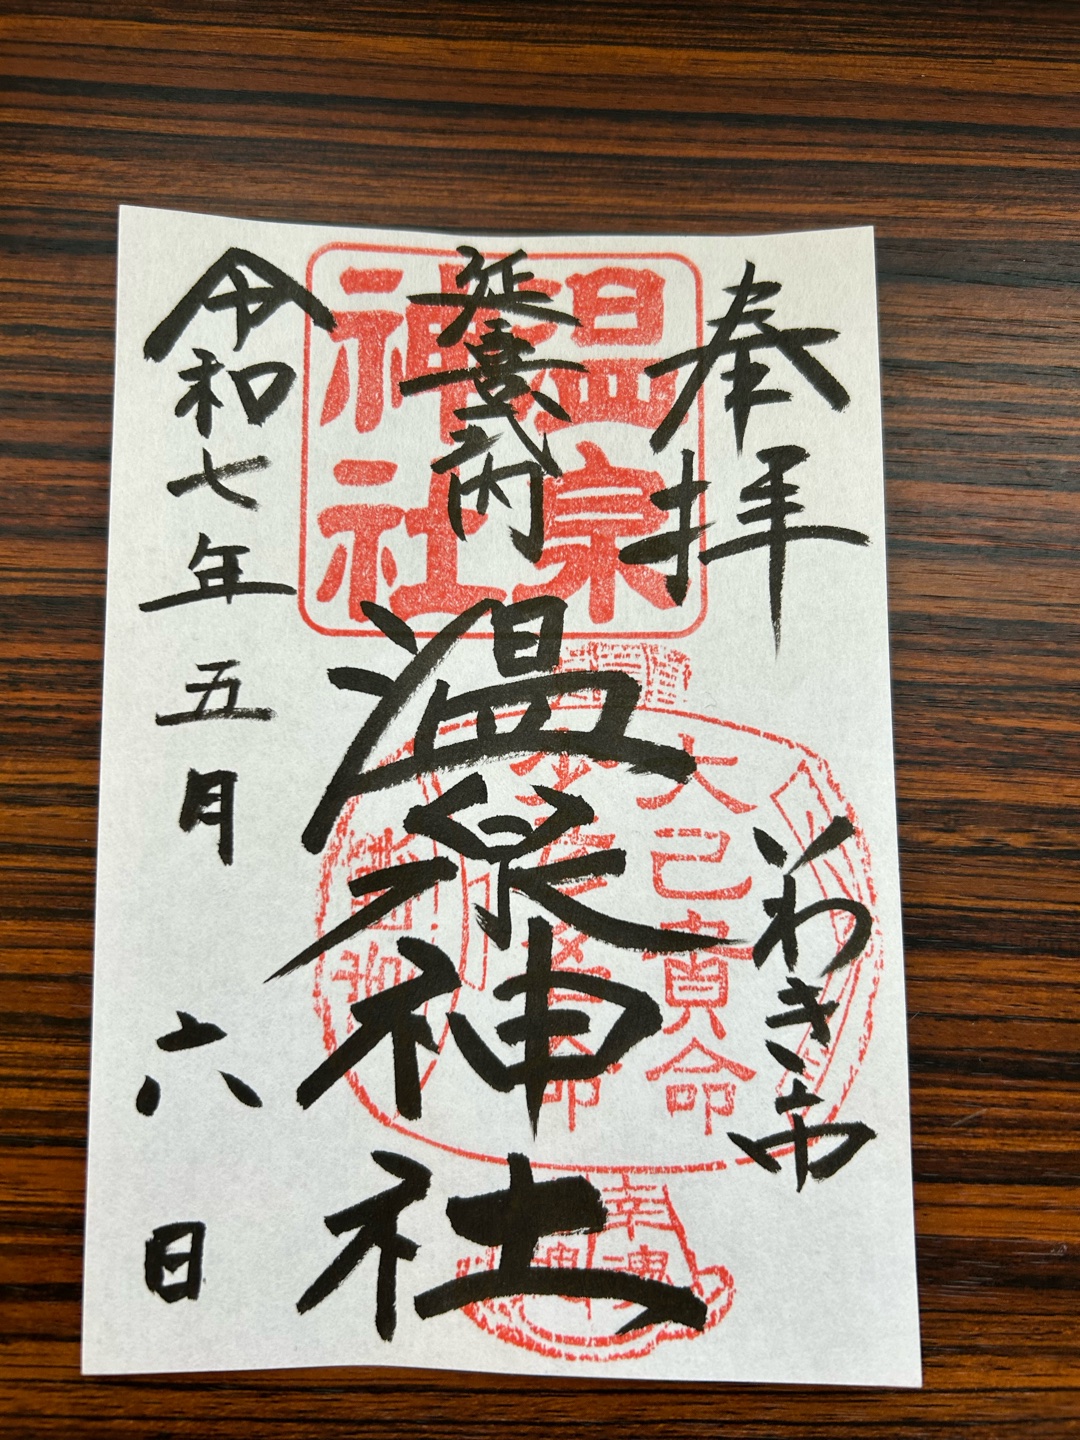 奉拝
いわき市
延喜式内
温泉神社
令和七年五月六日
温泉
神社
大己貴命
幸魂